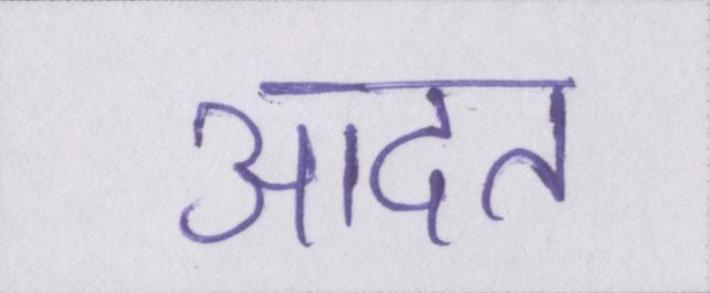 आदत